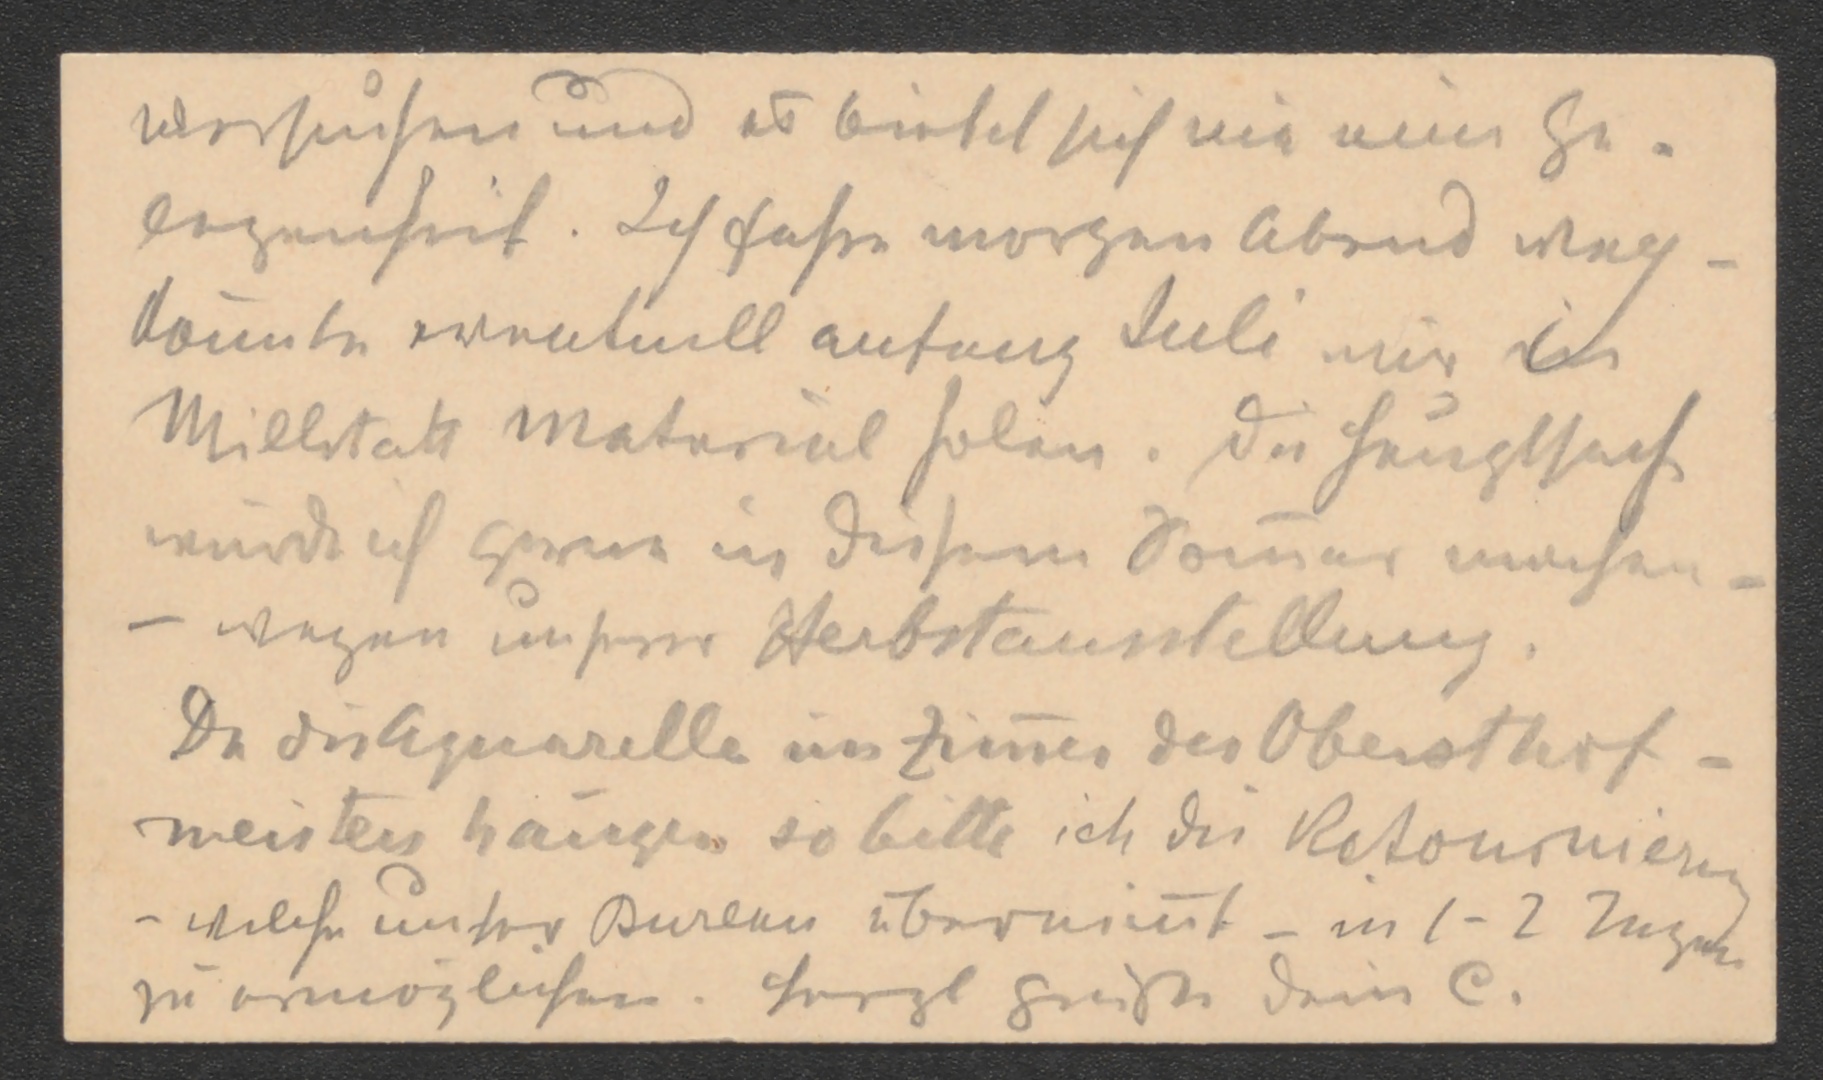 versuchen und es bietet sich nie eine Ge-
legenheit. Ich fahre morgen Abend weg -
könnte eventuell anfang Juli mir in
Millstatt Material holen. Die Hauptsach
würde ich gerne in diesem Som̅er machen -
- wegen unserer Herbstausstellung.
Da die Aquarelle im Zim̅er des Obersthof-
meisters hängen so bitte ich die Retournierung
- welche unser Bureau übernim̅t - in 1-2 Tagen
zu ermöglichen. Herzl Grüße dein C.